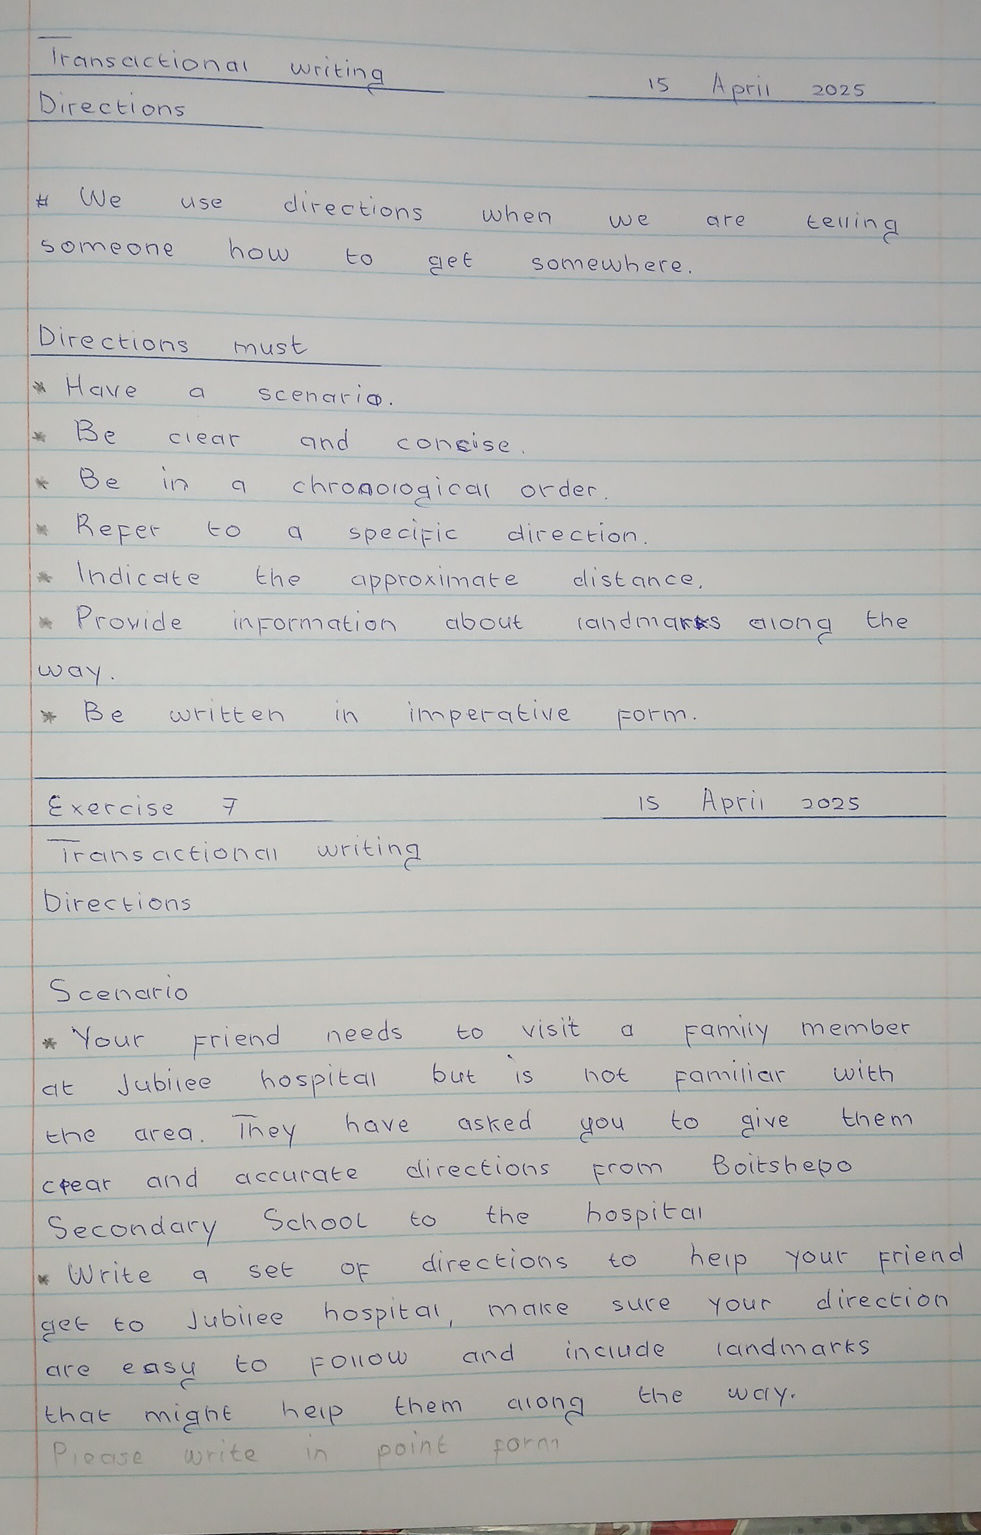 Transactional writing 15 April 2025
Directions
# We use directions when we are telling
someone how to get somewhere.
Directions must
* Have a scenario.
* Be clear and concise.
* Be in a chronological order.
* Refer to a specific direction.
* Indicate the approximate distance.
* Provide information about landmarks along the
way.
* Be written in imperative form.
Exercise 7 15 April 2025
Transactional writing
Directions
Scenario
* Your friend needs to visit a family member
at Jubilee hospital but is not familiar with
the area. They have asked you to give them
clear and accurate directions from Boitshepo
Secondary School to the hospital
* Write a set of directions to help your friend
get to Jubilee hospital, make sure your direction
are easy to follow and include landmarks
that might help them along the way.
Please write in point form